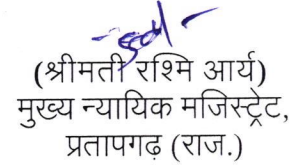 (श्रीमती रश्मि आर्य)
मुख्य न्यायिक मजिस्ट्रेट,
प्रतापगढ़ (राज.)